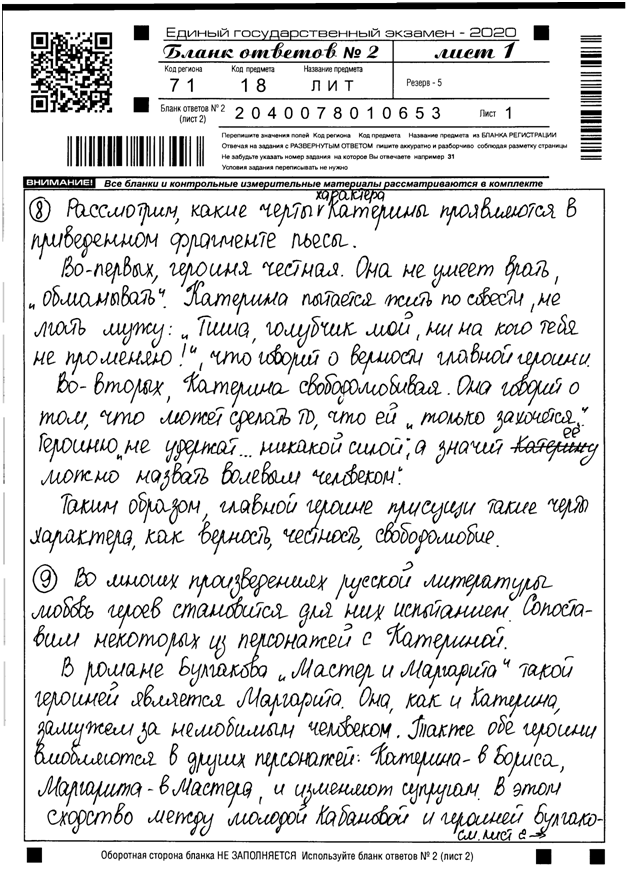 Единый государственный экзамен - 2020
Бланк ответов № 2 лист 1
Код региона Код предмета Название предмета
71 18 ЛИТ Резерв - 5
Бланк ответов № 2 (лист 2) 2040078010653 Лист 1
Перепишите значения полей Код региона Код предмета Название предмета из БЛАНКА РЕГИСТРАЦИИ
Отвечая на задания с РАЗВЕРНУТЫМ ОТВЕТОМ пишите аккуратно и разборчиво соблюдая разметку страницы
Не забудьте указать номер задания на которое Вы отвечаете например 31
Условия задания переписывать не нужно
ВНИМАНИЕ! Все бланки и контрольные измерительные материалы рассматриваются в комплекте
характера
8 Рассмотрим, какие черты Катерины проявляются в
приведенном фрагменте пьесы.
Во-первых, героиня честная. Она не умеет врать,
„обманывать“. Катерина пытается жить по совести, не
лгать мужу: „Тиша, голубчик мой, ни на кого тебя
не променяю!“, что говорит о верности главной героини.
Во-вторых, Катерина свободолюбивая. Она говорит о
том, что может сделать то, что ей „только захочется“.
Героиню „не удержат... никакой силой“, а значит Катерину её
можно назвать волевым человеком“.
Таким образом, главной героине присущи такие черты
характера, как верность, честность, свободолюбие.
9 Во многих произведениях русской литературы
любовь героев становится для них испытанием. Сопоста-
вим некоторых из персонажей с Катериной.
В романе Булгакова „Мастер и Маргарита“ такой
героиней является Маргарита. Она, как и Катерина,
замужем за нелюбимым человеком. Также обе героини
влюбляются в других персонажей: Катерина - в Бориса,
Маргарита - в Мастера, и изменяют супругам. В этом
сходство между молодой Кабановой и героиней Булгако-
см. лист 2 →
Оборотная сторона бланка НЕ ЗАПОЛНЯЕТСЯ Используйте бланк ответов № 2 (лист 2)